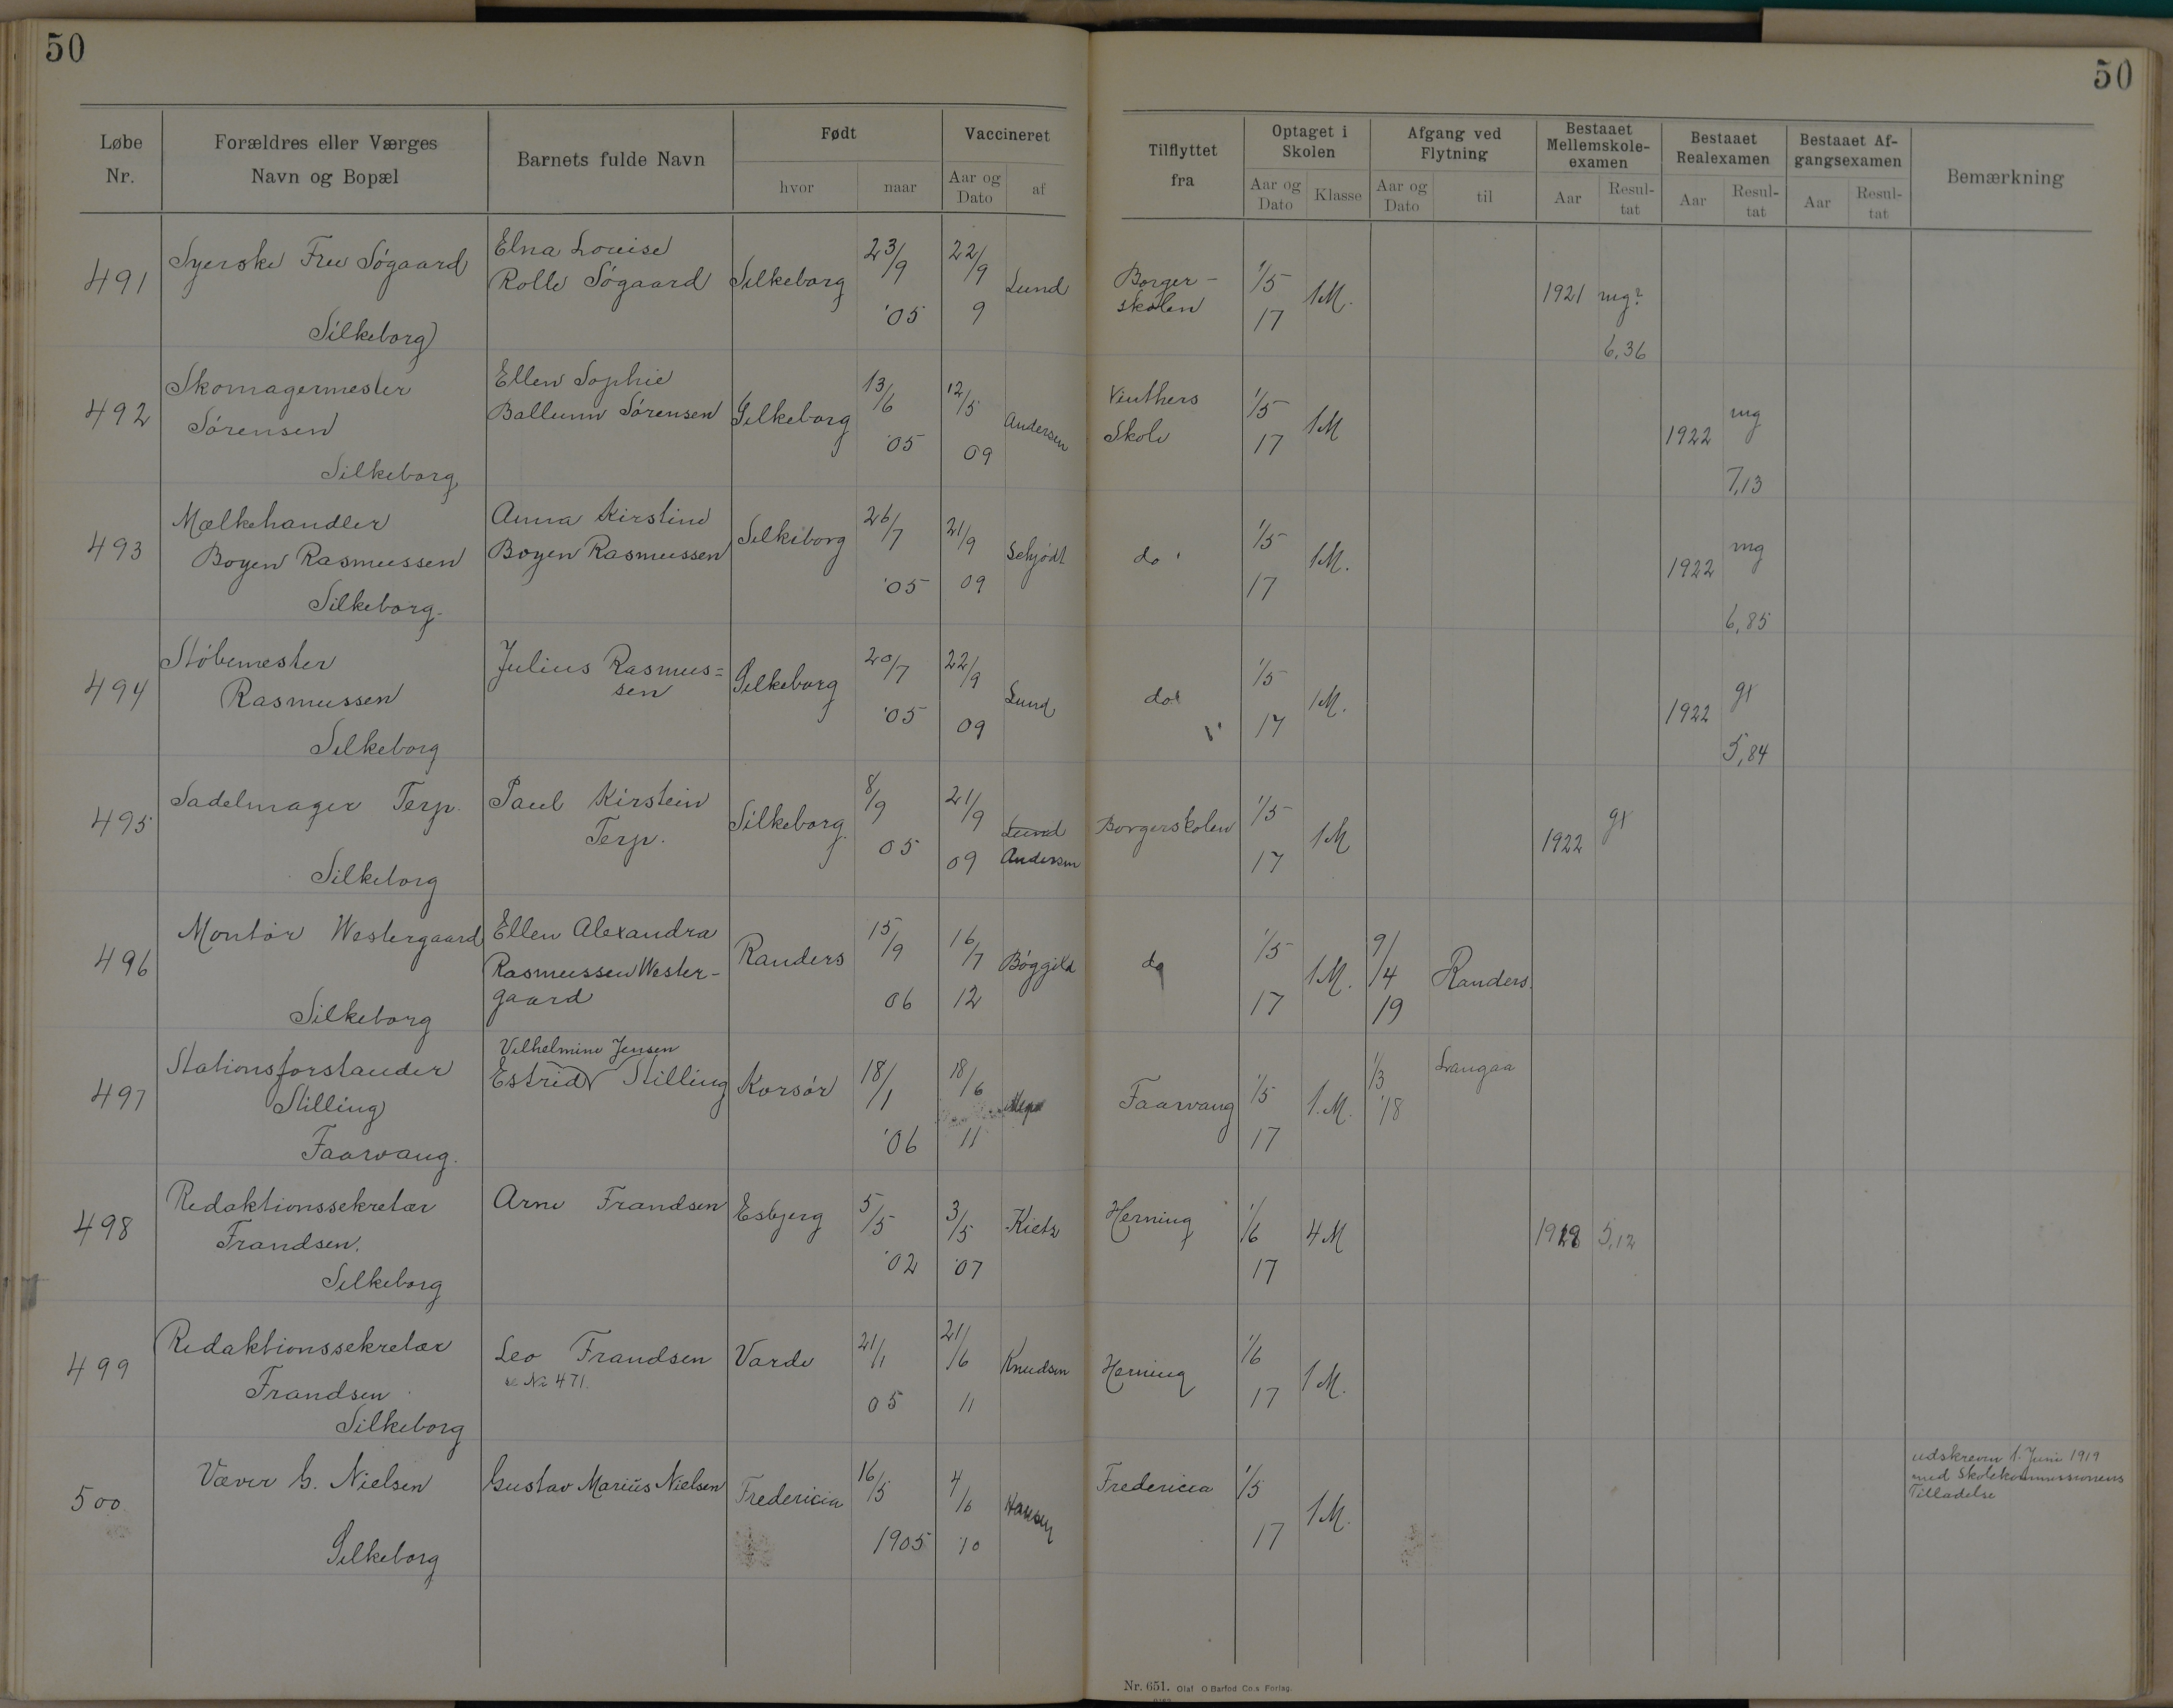 50
50
Løbe Nr.
Forældres eller Værges Navn og Bopæl
Barnets fulde Navn
Født
hvor
naar
Vaccineret
Aar og Dato
af
Tilflyttet fra
Optaget i Skolen
Aar og Dato
Klasse
Afgang ved Flytning
Aar og Dato
til
Bestaaet Mellemskole-examen
Aar
Resul-tat
Bestaaet Realexamen
Aar
Resul-tat
Bestaaet Af-gangsexamen
Aar
Resul-tat
Bemærkning
491 Syerske Fru Søgaard Silkeborg Elna Louise Rolle Søgaard Silkeborg 23/9 '05 22/9 9 Lund Borger-skolen 1/5 17 1M. 1921 mg? 6,36
492 Skomagermester Sørensen Silkeborg Ellen Sophie Ballumn Sørensen Silkeborg 13/6 '05 12/5 09 Andersen Vinthers Skole 1/5 17 1M 1922 mg 7,13
493 Mælkehandler Boyen Rasmussen Silkeborg. Anna Kirstine Boyen Rasmussen Silkeborg 26/7 '05 21/9 09 Schjødt do 1/5 17 1M. 1922 mg 6,85
494 Støbemester Rasmussen Silkeborg Julius Rasmus=sen Silkeborg 20/7 '05 22/9 09 Lund do 1/5 17 1M. 1922 g+ 5,84
495 Sadelmager Terp. Silkeborg Paul Kirstein Terp. Silkeborg 8/9 05 21/9 09 Lund Andersen Borgerskolen 1/5 17 1M 1922 g+
496 Montør Westergaard Silkeborg Ellen Alexandra Rasmussen Wester-gaard Randers 15/9 06 16/7 12 Bøggild do 1/5 17 1M. 9/4 19 Randers.
497 Stationsforstander Stilling Faarvang. Vilhelmine Jensen Estrid Stilling Korsør 18/1 '06 18/6 11 Faarvang 1/5 17 1.M. 1/3 '18 Langaa
498 Redaktionssekretær Frandsen. Silkeborg Arne Frandsen Esbjerg 5/5 '02 3/5 '07 Kietz Herning 1/6 17 4M 5,12
499 Redaktionssekretær Frandsen Silkeborg Leo Frandsen se No 471. Varde 21/1 05 21/6 11 Knudsen Herning 1/6 17 1M.
500 Væver G. Nielsen Silkeborg Gustav Marius Nielsen Fredericia 16/5 1905 4/6 '10 Hansen Fredericia 1/5 17 1M. udskreven 1. Juni 1919 med Skolekommissionens Tilladelse
Nr. 651. Olaf O Barfod Co.s Forlag.